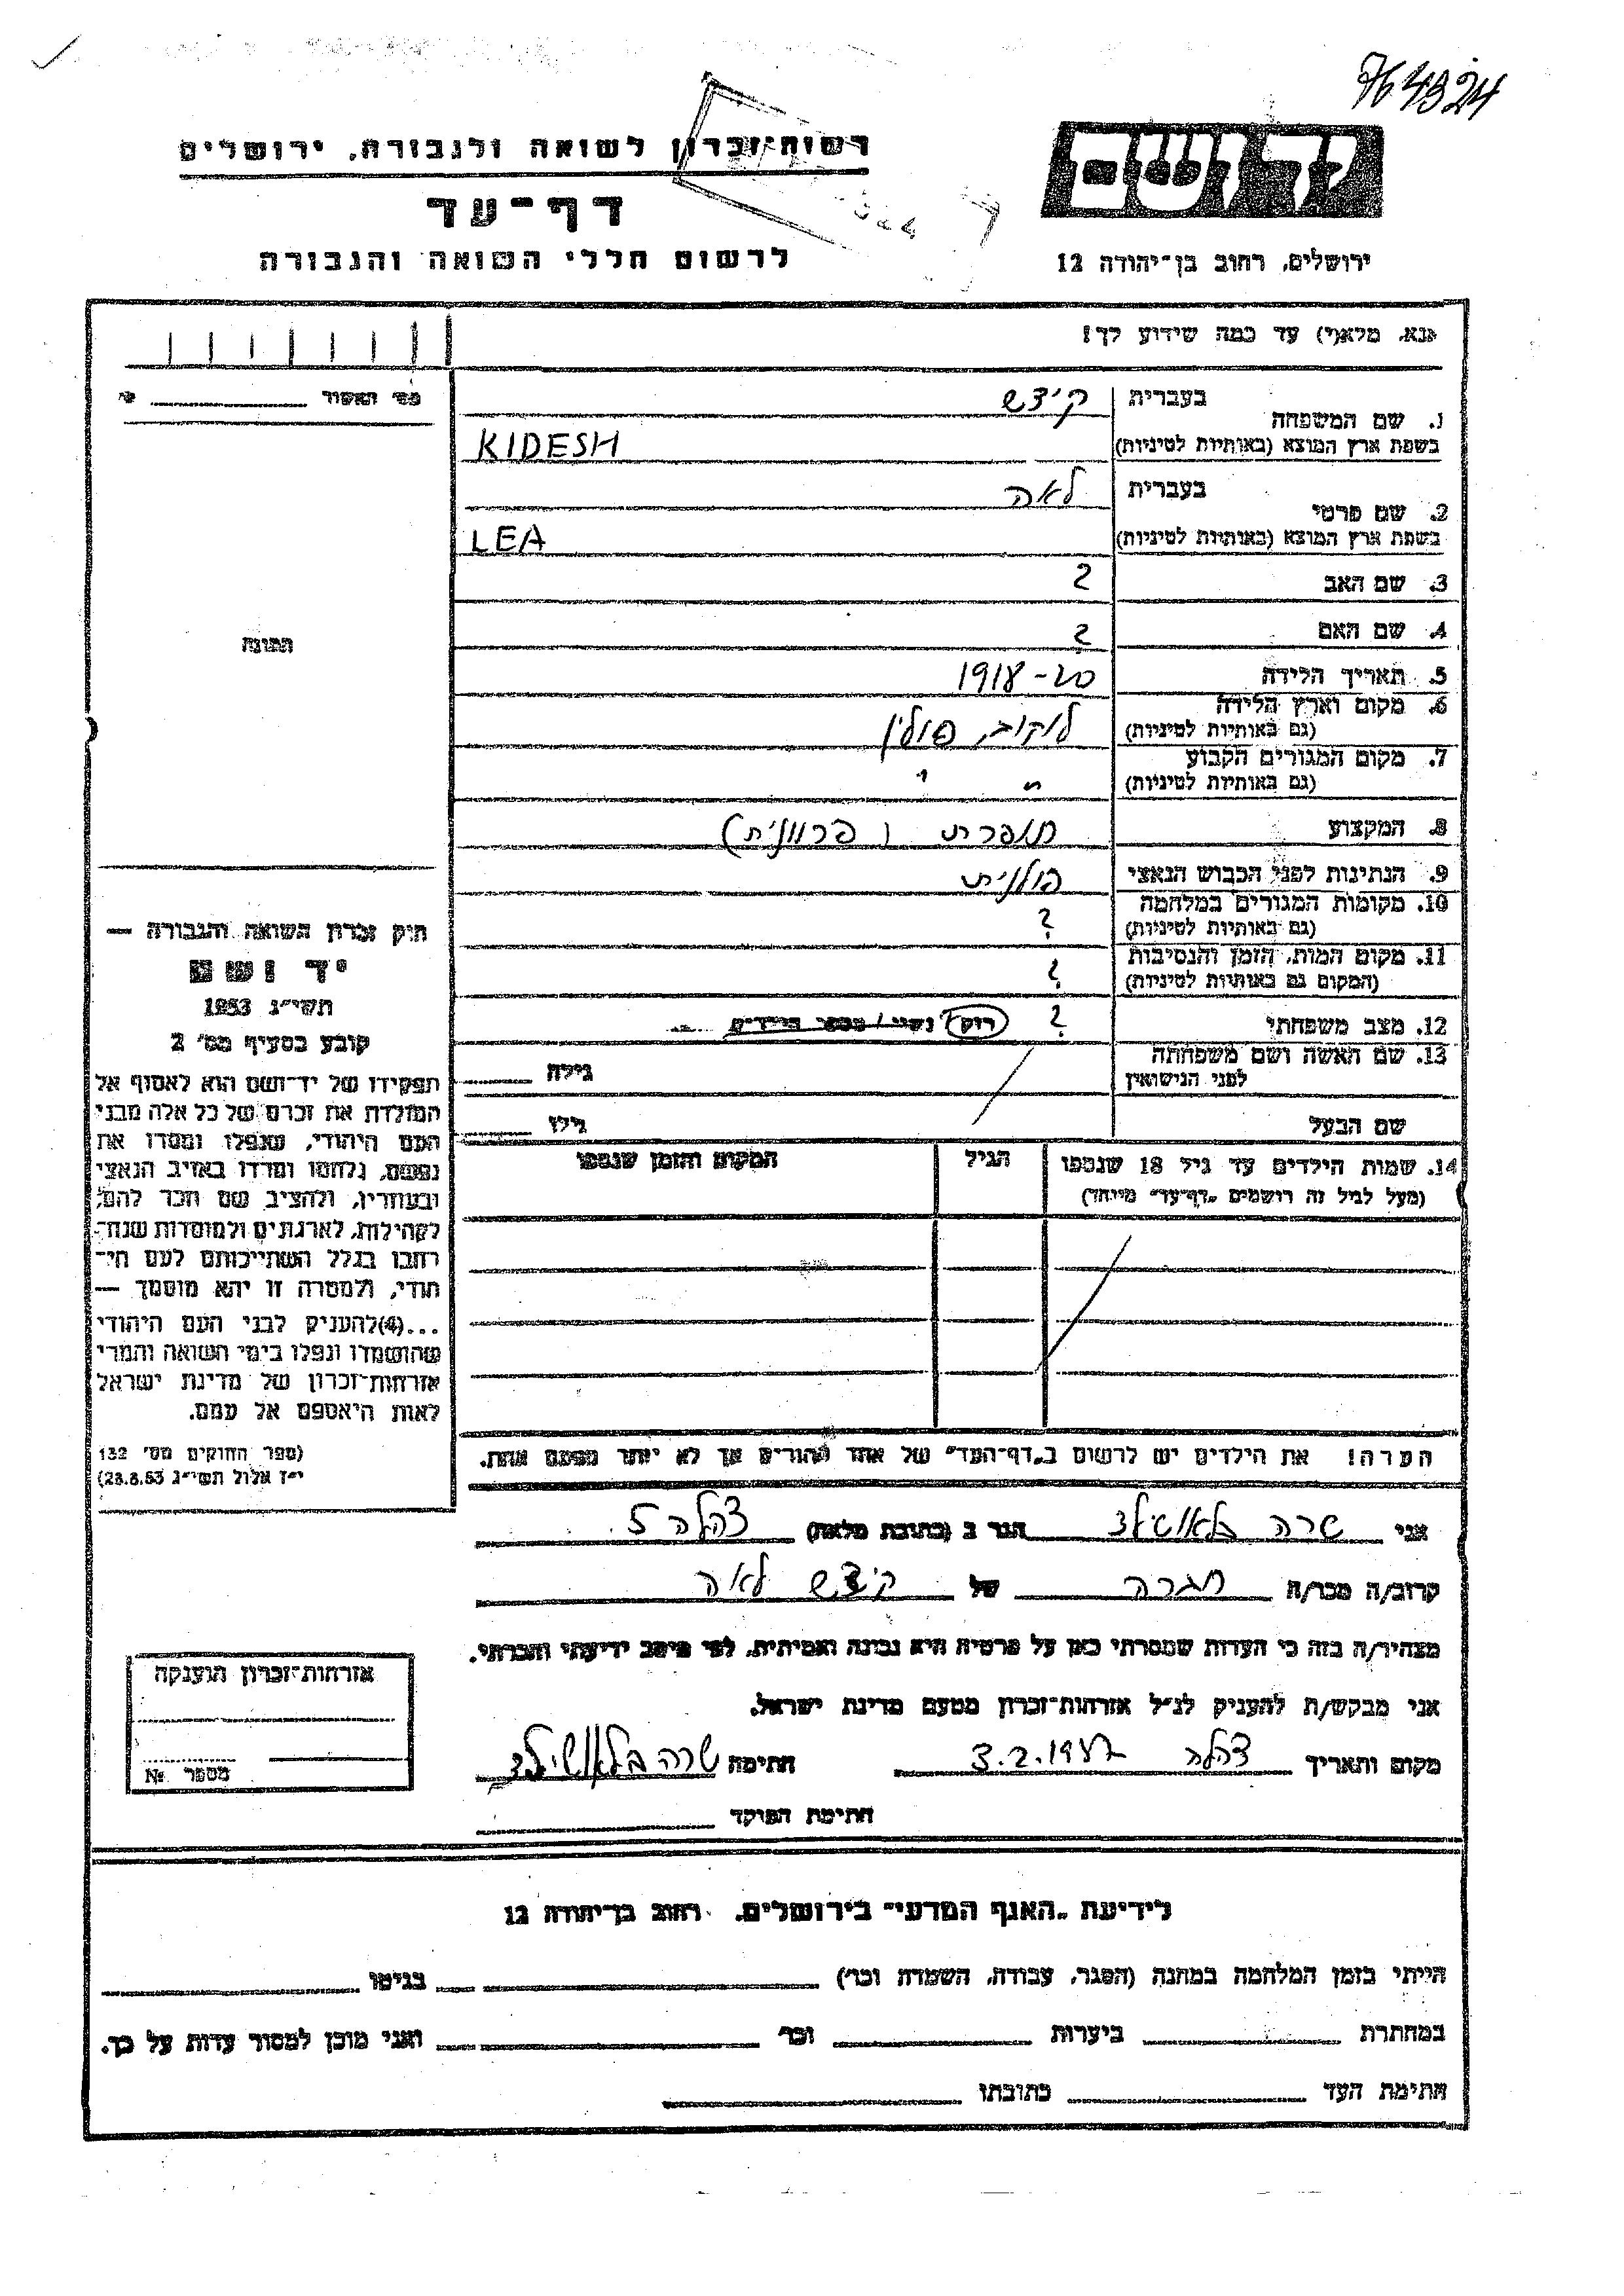 764924
רשות־זכרון לשואה ולגבורה, ירושלים
דף־עד
לרשום חללי השואה והגבורה
יד ושם
ירושלים, רחוב בן־יהודה 12
אנא, מלא(י) עד כמה שידוע לך!
מס' האשור
1. שם המשפחה
בעברית
קידש
בשפת ארץ המוצא (באותיות לטיניות)
KIDESH
2. שם פרטי
בעברית
לאה
בשפת ארץ המוצא (באותיות לטיניות)
LEA
3. שם האב
?
4. שם האם
?
5. תאריך הלידה
1918-20
6. מקום וארץ הלידה
(גם באותיות לטיניות)
לוקוב, פולין
7. מקום המגורים הקבוע
(גם באותיות לטיניות)
" "
8. המקצוע
תופרת (פרוונית)
9. הנתינות לפני הכבוש הנאצי
פולנית
10. מקומות המגורים במלחמה
(גם באותיות לטיניות)
?
11. מקום המות, הזמן והנסיבות
(המקום גם באותיות לטיניות)
?
12. מצב משפחתי
? רוק/ נשוי / מספר הילדים
13. שם האשה ושם משפחתה
לפני הנישואין
גילה
שם הבעל
גילו
14. שמות הילדים עד גיל 18 שנספו
(מעל לגיל זה רושמים „דף־עד" מיוחד)
הגיל
המקום והזמן שנספו
הערה! את הילדים יש לרשום ב„דף־העד" של אחד ההורים אך לא יותר מפעם אחת.
התמונה
חוק זכרון השואה והגבורה —
יד ושם
תשי״ג 1953
קובע בסעיף מס' 2
תפקידו של יד־ושם הוא לאסוף אל
המולדת את זכרם של כל אלה מבני
העם היהודי, שנפלו ומסרו את
נפשם, נלחמו ומרדו באויב הנאצי
ובעוזריו, ולהציב שם וזכר להם,
לקהילות, לארגונים ולמוסדות שנח־
רבו בגלל השתייכותם לעם הי־
הודי, ולמטרה זו יהא מוסמך —
...(4)להעניק לבני העם היהודי
שהושמדו ונפלו בימי השואה והמרי
אזרחות־זכרון של מדינת ישראל
לאות היאספם אל עמם.
(ספר החוקים מס' 132
י״ז אלול תשי״ג 28.8.53)
אני שרה בלאושילד הגר ב (כתובת מלאה) צהלה 5
קרוב/ה מכר/ה חברה של קידש לאה
מצהיר/ה בזה כי העדות שמסרתי כאן על פרטיה היא נכונה ואמיתית, לפי מיטב ידיעתי והכרתי.
אני מבקש/ת להעניק לנ״ל אזרחות־זכרון מטעם מדינת ישראל.
מקום ותאריך צהלה 3.2.1987 חתימה שרה בלאושילד
חתימת הפוקד
אזרחות־זכרון הוענקה
מספר №
לידיעת „האגף המדעי" בירושלים, רחוב בן־יהודה 12
הייתי בזמן המלחמה במחנה (הסגר, עבודה, השמדה וכר') בגיטו
במחתרת ביערות וכר' ואני מוכן למסור עדות על כך.
חתימת העד כתובתו